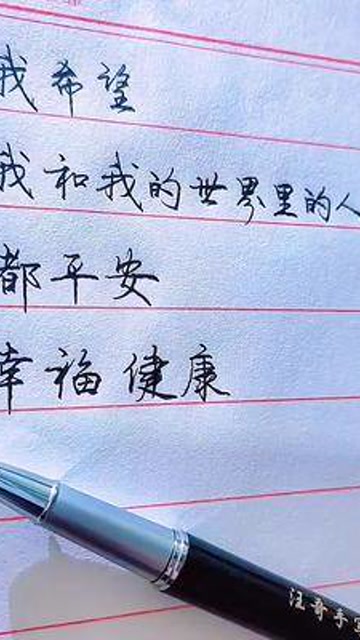 我希望
我和我的世界里的人
都平安
幸福健康
汪哥手写